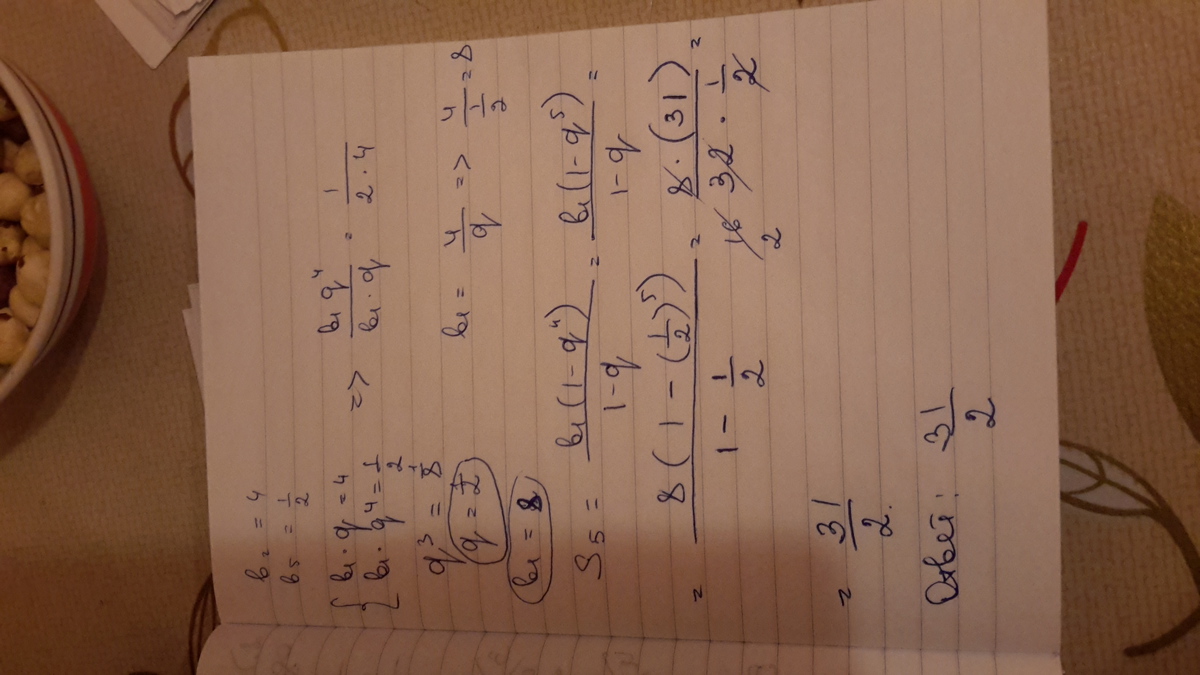 b₂ = 4
b₅ = 1/2
{ b₁ · q = 4
b₁ · q⁴ = 1/2 => b₁q⁴/b₁·q = 1/2·4
q³ = 1/8
q = 1/2
b₁ = 4/q => 4/(1/2) = 8
b₁ = 8
S₅ = b₁(1-q⁴)/1-q = b₁(1-q⁵)/1-q =
= 8(1-(1/2)⁵)/1-1/2 = 8·(31)/32·1/2 =
16
2
= 31/2.
Ответ: 31/2